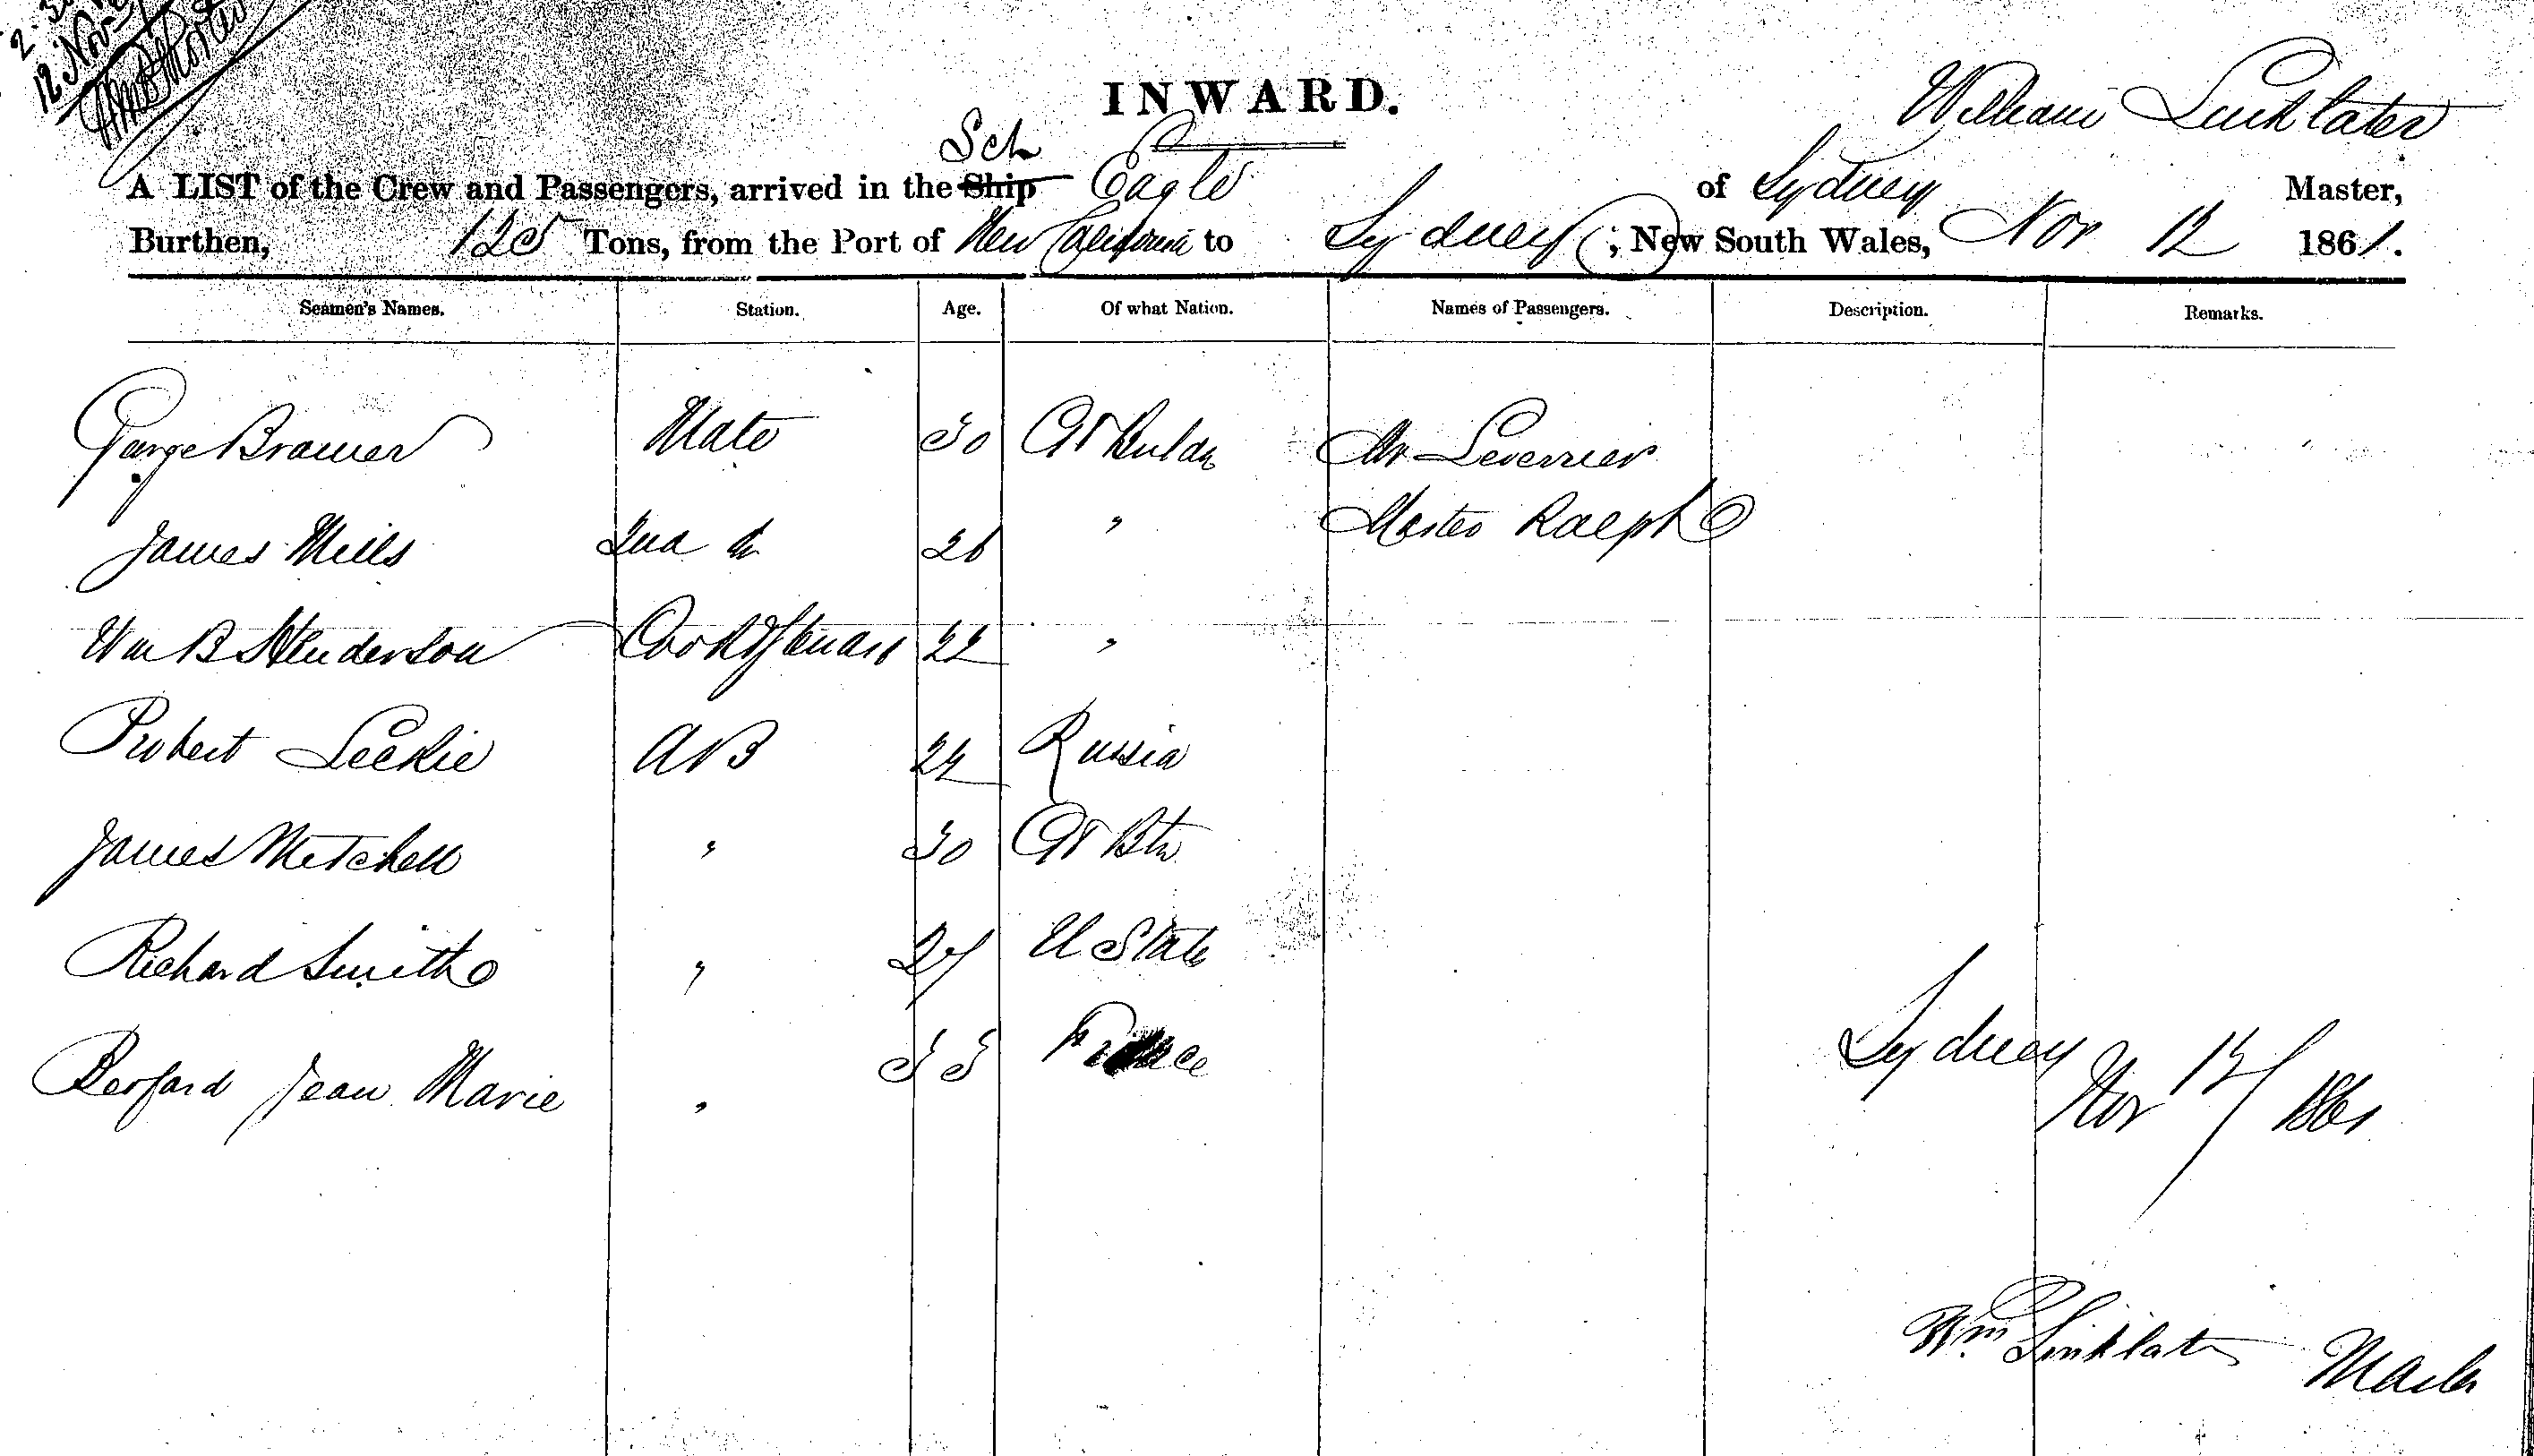 12 Nov
INWARD.
William Linklater
Sch
A LIST of the Crew and Passengers, arrived in the Ship Eagle of Sydney Master,
Burthen, 125 Tons, from the Port of New to Sydney ; New South Wales, Nov 12 1861.
Seamen's Names. Station. Age. Of what Nation. Names of Passengers. Description. Remarks.
George Mate 30 Gt Mr Leverrier
James Mills 26 " Master Ralph
Wm B Henderson Cook & 22 "
Robert Leckie AB 24 Russia
James Mitchell " 30 Gt Btn
Richard Smith " 27 U States
Jean Marie " 33 France
Sydney
Nov 12/1861
Wm Linklater Master